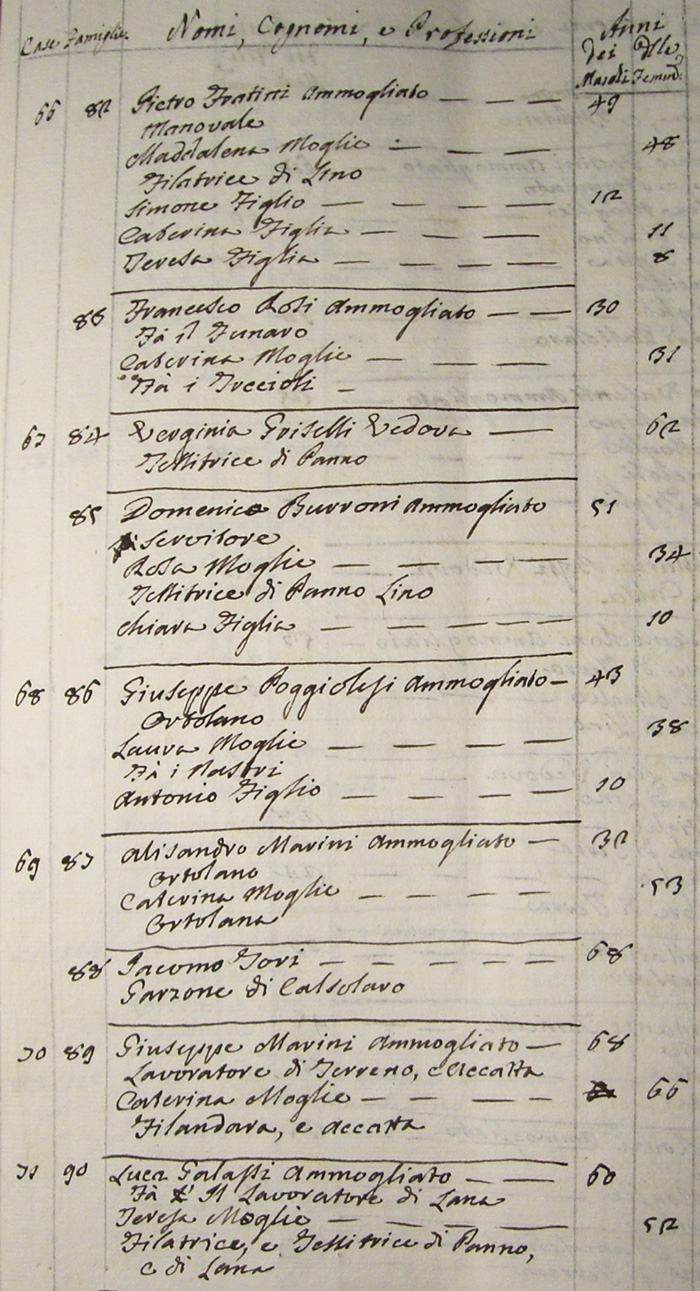 Case Famiglie. Nomi, Cognomi, e Professioni Anni
dei Elle,
Maschi Femin:
66 82 Pietro Fratini Ammogliato — — — 49
Manovale
Maddalena Moglie — — — 48
Filatrice di Lino
Simone Figlio — — — — 12
Caterina Figlia — — — 11
Teresa Figlia — — — — 8
83 Francesco Rosi Ammogliato — — 30
Fà il Funaro
Caterina Moglie — — — 31
Fà i Treccioli —
67 84 Verginia Griselli Vedova — 62
Tessitrice di Panno
85 Domenico Burroni Ammogliato 51
Servitore
Rosa Moglie — — — — 34
Tessitrice di Panno Lino
Chiara Figlia — — — — — 10
68 86 Giuseppe Poggiolesi Ammogliato — 43
Ortolano
Laura Moglie — — — — 38
Fà i Nastri
Antonio Figlio — — — — 10
69 87 Alisandro Marini Ammogliato — 32
Ortolano
Caterina Moglie — — — — 53
Ortolana
88 Iacomo Tori — — — — — 68
Garzone di Calsolaro
70 89 Giuseppe Marini Ammogliato — 68
Lavoratore di Terreno, e Accatta
Caterina Moglie — — — — 66
Filandara, e Accatta
71 90 Luca Galassi Ammogliato — — 60
Fà Il Lavoratore di Lana
Teresa Moglie — — — — 52
Filatrice, e Tessitrice di Panno,
e di Lana